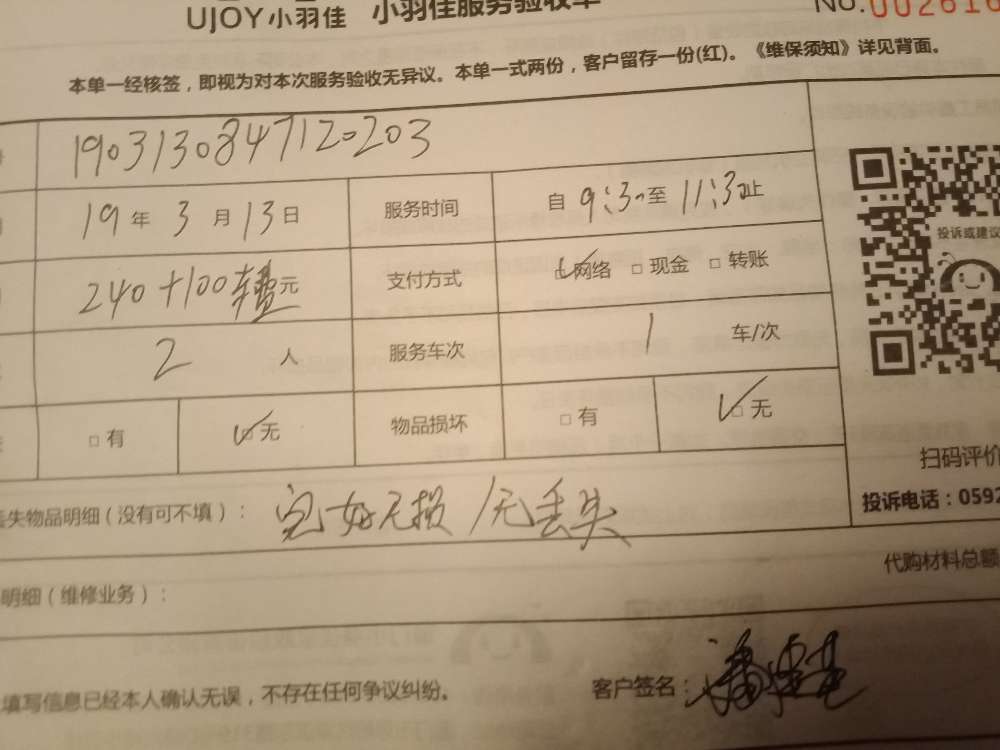 UJOY小羽佳 小羽佳服务验收单
No.002616
本单一经核签，即视为对本次服务验收无异议。本单一式两份，客户留存一份(红)。《维保须知》详见背面。
190313084712203
19年3月13日 服务时间 自9:30至11:30止
240+100车费元 支付方式 ☑网络 □现金 □转账
投诉或建议
2人 服务车次 1车/次
□有 ☑无 物品损坏 □有 ☑无
扫码评价
丢失物品明细（没有可不填）： 完好无损/无丢失
投诉电话：0592
代购材料总额
明细（维修业务）：
填写信息已经本人确认无误，不存在任何争议纠纷。 客户签名：